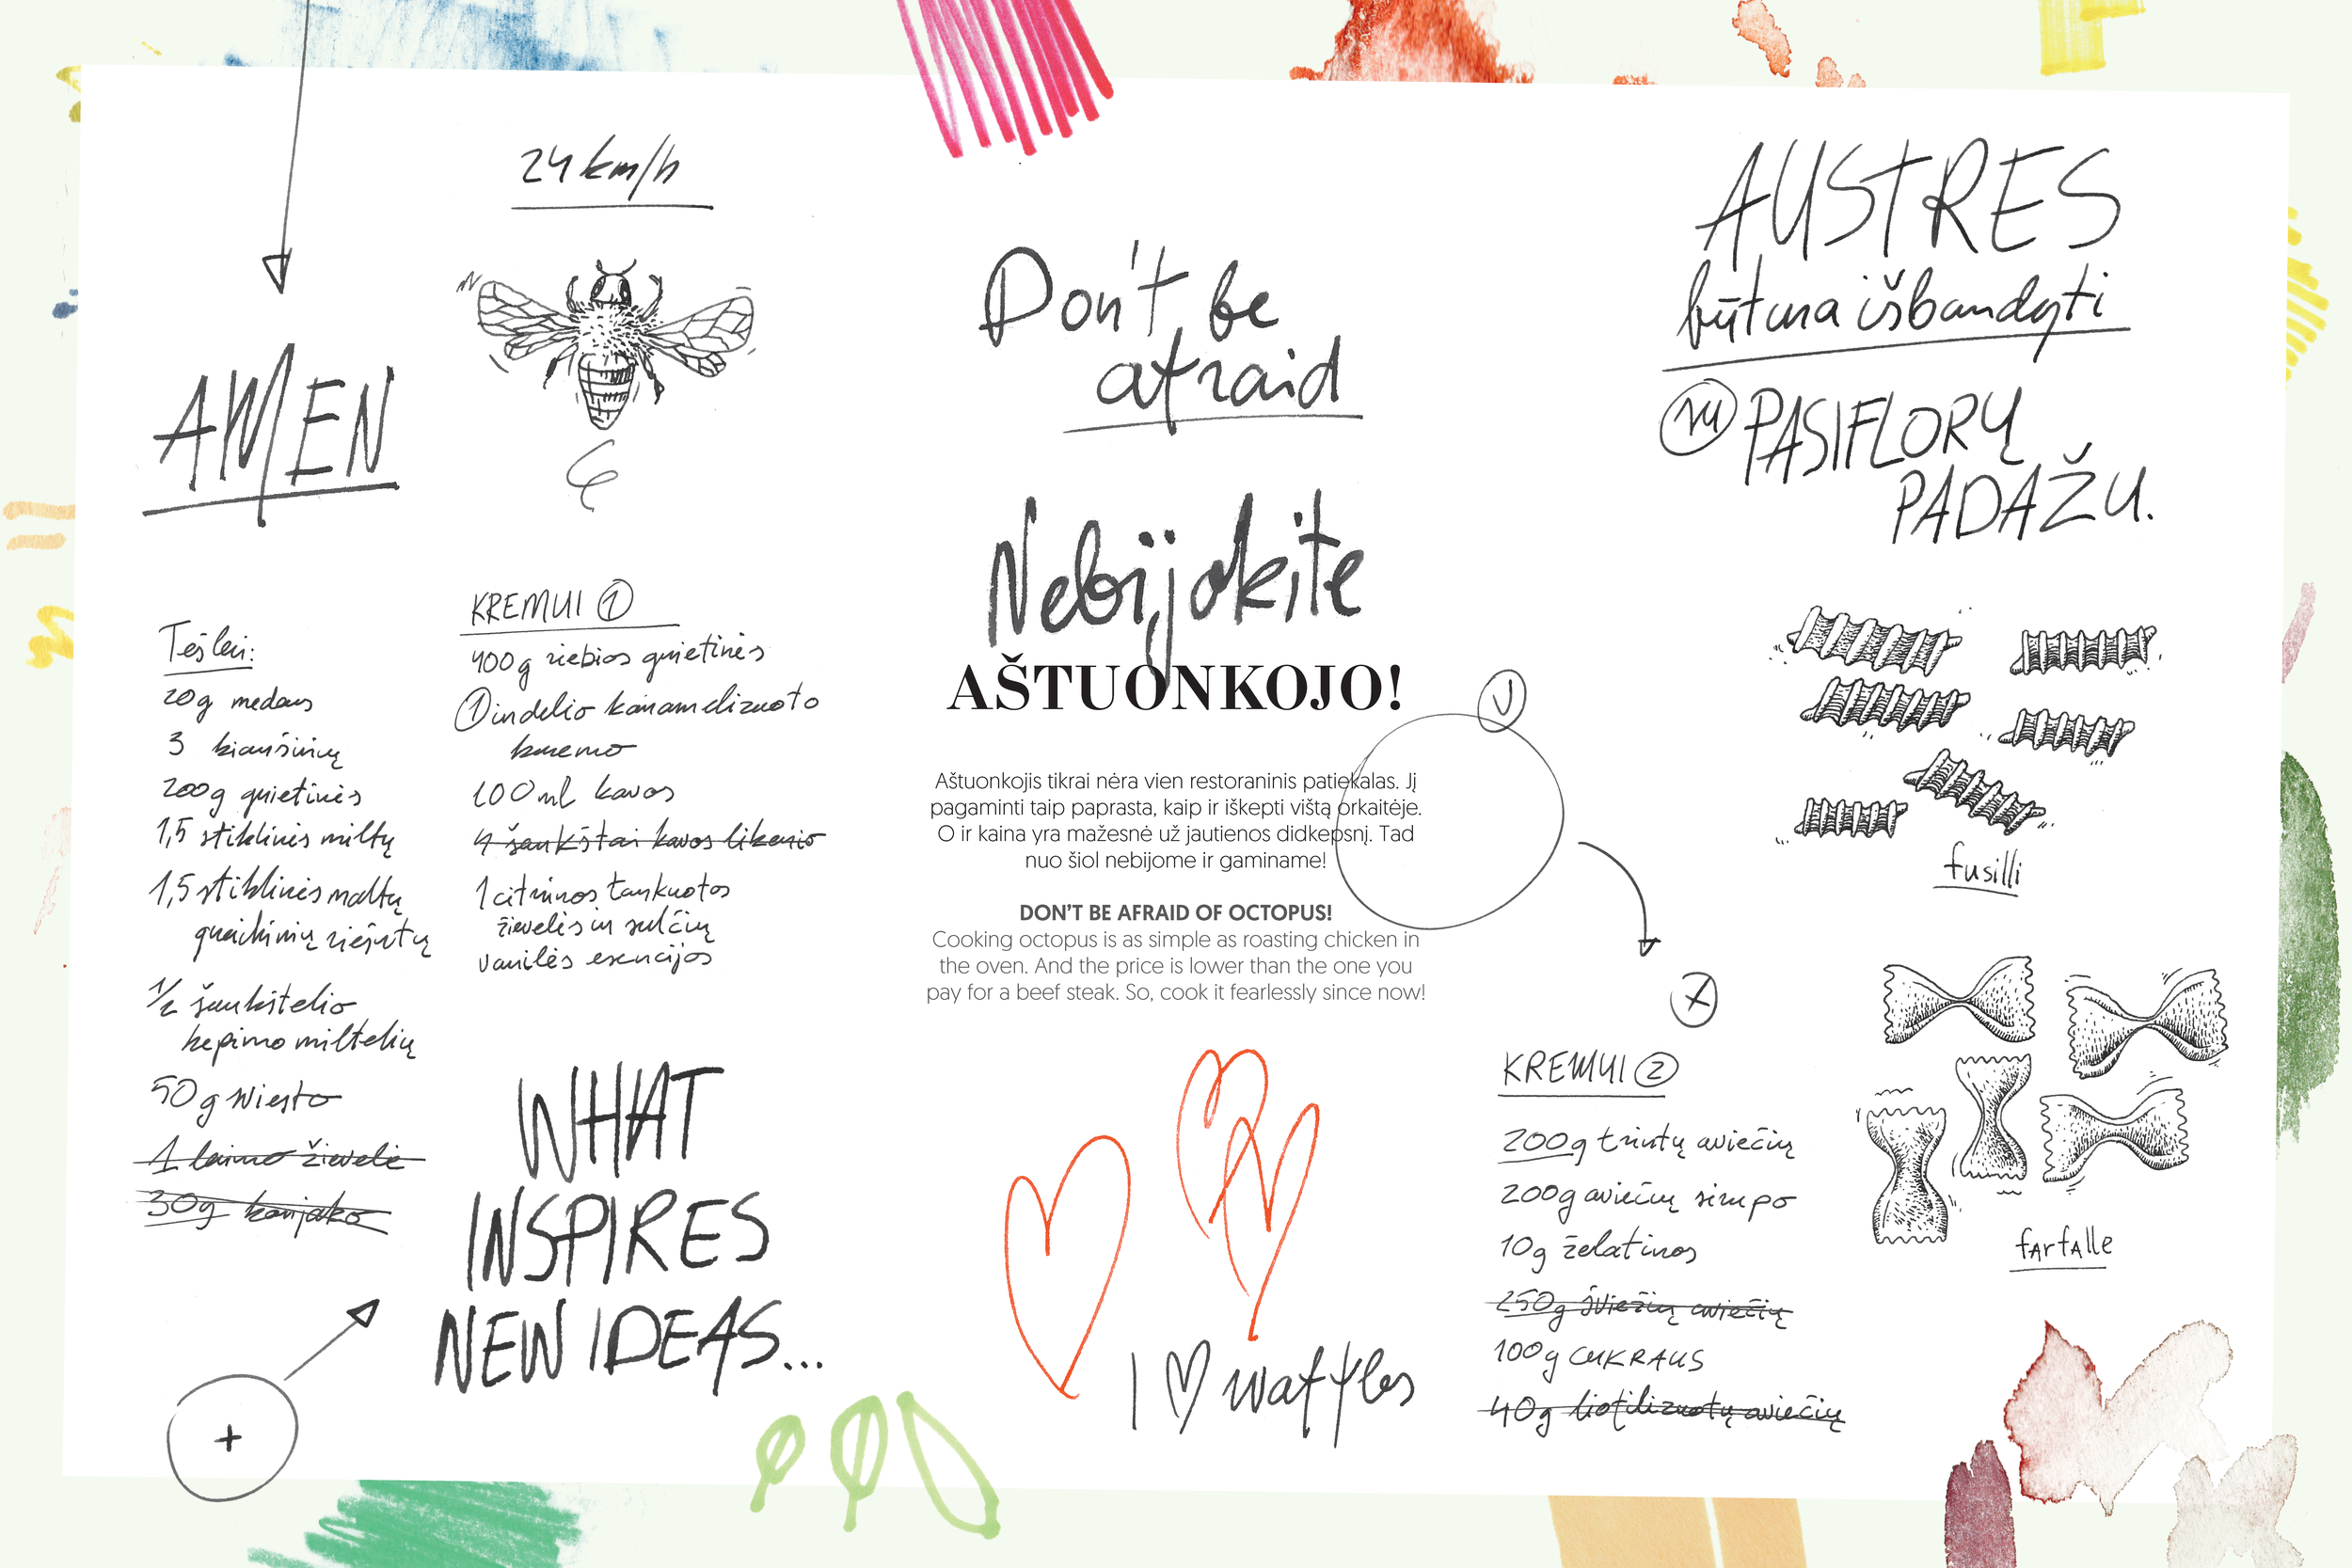 24 km/h
AMEN
Tešlai:
20g medaus
3 kiaušinių
200g grietinės
1,5 stiklinės miltų
1,5 stiklinės maltų
graikinių riešutų
1/2 šaukštelio
kepimo miltelių
50g sviesto
1 laimo žievelė
30g konjako
+
KREMUI 1
400g riebios grietinės
1 indelio karamelizuoto
kremo
100 ml kavos
4 šaukštai kavos likerio
1 citrinos tarkuotos
žievelės ir sulčių
vanilės esencijos
WHAT
INSPIRES
NEW IDEAS...
Don't be
afraid
Nebijokite
AŠTUONKOJO!
Aštuonkojis tikrai nėra vien restoraninis patiekalas. Jį
pagaminti taip paprasta, kaip ir iškepti vištą orkaitėje.
O ir kaina yra mažesnė už jautienos didkepsnį. Tad
nuo šiol nebijome ir gaminame!
DON'T BE AFRAID OF OCTOPUS!
Cooking octopus is as simple as roasting chicken in
the oven. And the price is lower than the one you
pay for a beef steak. So, cook it fearlessly since now!
I ♡ waffles
AUSTRES
būtina išbandyti
su PASIFLORŲ
PADAŽU.
fusilli
farfalle
KREMUI 2
200g trintų aviečių
200g aviečių sirupo
10g želatinos
250g šviežių aviečių
100g CUKRAUS
40g liofilizuotų aviečių